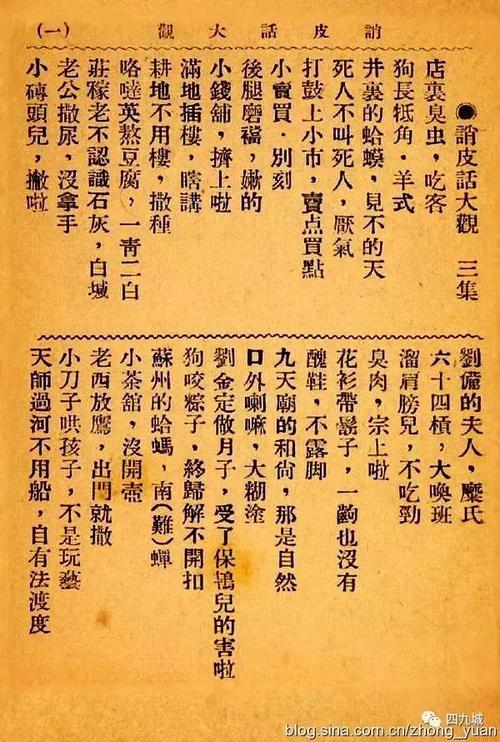 誚皮話大觀（一）
●誚皮話大觀　三集
店裏臭虫，吃客
狗長牴角．羊式
井裏的蛤蟆，見不的天
死人不叫死人，厭氣
打鼓上小市，賣点買點
小賣買．別刻
後腿磨襠，嫩的
小錢舖，擠上啦
滿地插樓，瞎講
耕地不用樓，撒種
咯噠英熬豆腐，一靑二白
莊稼老不認識石灰，白城
老公撒尿，沒拿手
小磚頭兒，撇啦
劉備的夫人，糜氏
六十四槓，大喚班
溜肩膀兒，不吃勁
臭肉，宗上啦
花衫帶鬍子，一齣也沒有
醜鞋，不露脚
九天廟的和尙，那是自然
口外喇嘛，大糊塗
劉金定做月子，受了保鴇兒的害啦
狗咬粽子，終歸解不開扣
蘇州的蛤螞，南(難)蟬
小茶舘，沒開壺
老西放鷹，出門就撒
小刀子哄孩子，不是玩藝
天師過河不用船，自有法渡度
四九城
blog.sina.com.cn/zhong_yuan